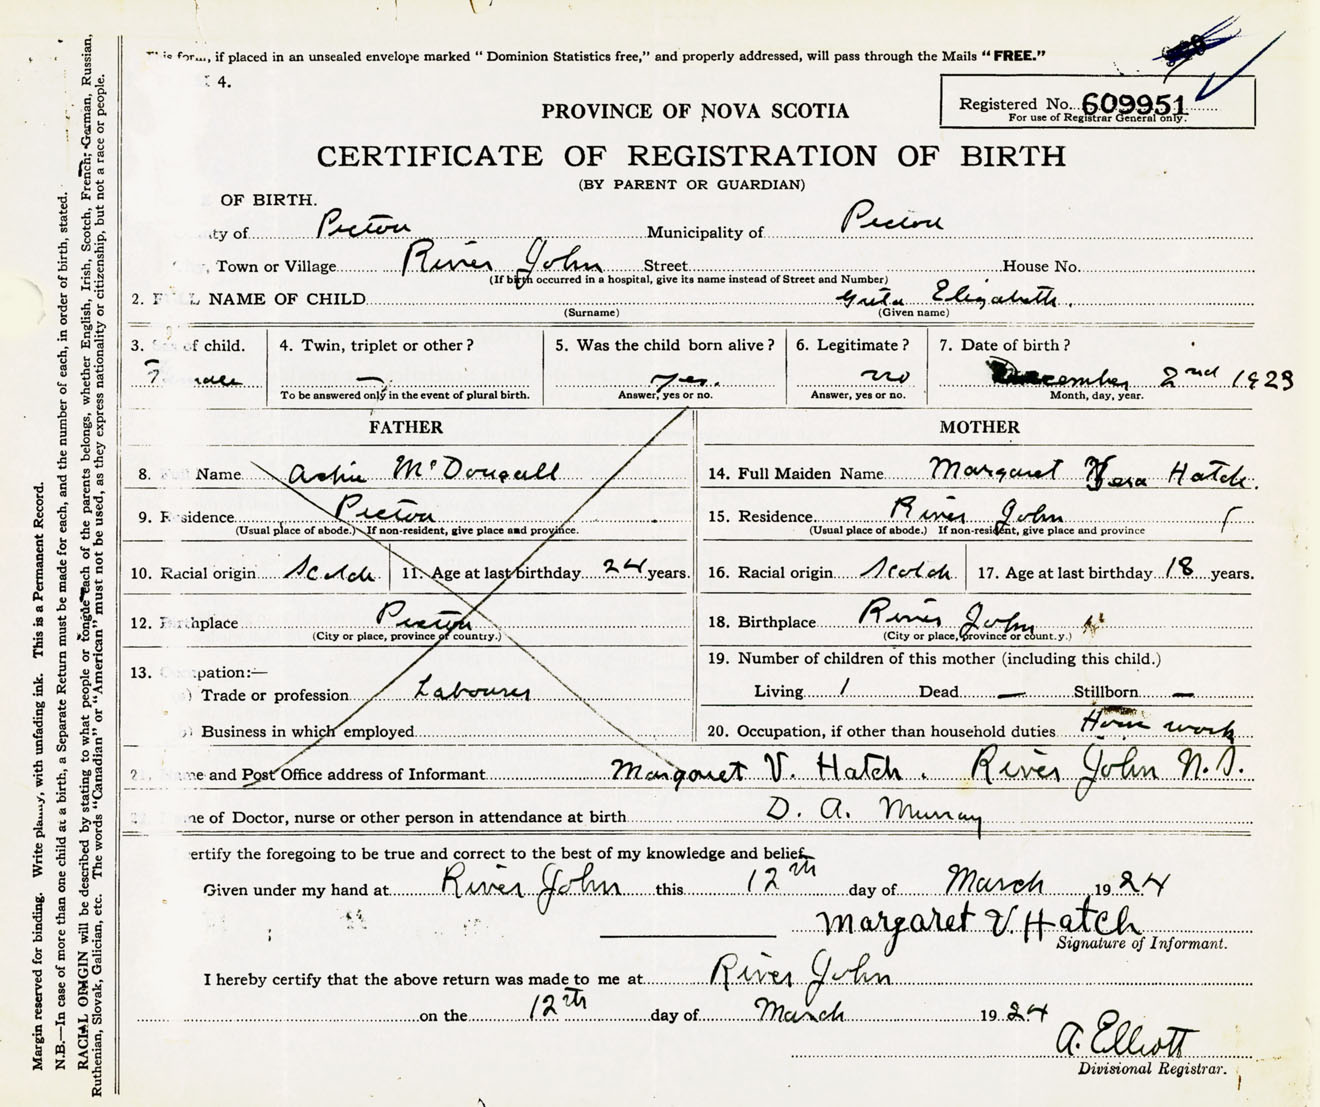 if placed in an unsealed envelope marked "Dominion Statistics free," and properly addressed, will pass through the Mails "FREE."
4.
Registered No. 609951
For use of Registrar General only.
PROVINCE OF NOVA SCOTIA
CERTIFICATE OF REGISTRATION OF BIRTH
(BY PARENT OR GUARDIAN)
OF BIRTH.
ty of Pictou Municipality of Pictou
Town or Village River John Street House No.
(If birth occurred in a hospital, give its name instead of Street and Number)
2. NAME OF CHILD Greta Elizabeth.
(Surname) (Given name)
3. of child. 4. Twin, triplet or other? 5. Was the child born alive? 6. Legitimate? 7. Date of birth?
— yes. no December 2nd 1923
To be answered only in the event of plural birth. Answer, yes or no. Answer, yes or no. Month, day, year.
FATHER MOTHER
8. Name Archie McDougall 14. Full Maiden Name Margaret Vera Hatch.
9. Residence Pictou 15. Residence River John
(Usual place of abode.) If non-resident, give place and province. (Usual place of abode.) If non-resident, give place and province
10. Racial origin Scotch 11. Age at last birthday 24 years. 16. Racial origin Scotch 17. Age at last birthday 18 years.
12. Birthplace Pictou 18. Birthplace River John
(City or place, province or country.) (City or place, province or count.y.)
13. pation:—
19. Number of children of this mother (including this child.)
Trade or profession Labourer Living 1 Dead — Stillborn —
Business in which employed 20. Occupation, if other than household duties House work
me and Post Office address of Informant Margaret V. Hatch. River John N.S.
ne of Doctor, nurse or other person in attendance at birth D. A. Murray
ertify the foregoing to be true and correct to the best of my knowledge and belief.
Given under my hand at River John this 12th day of March 1924
Margaret V. Hatch
Signature of Informant.
I hereby certify that the above return was made to me at River John
on the 12th day of March 1924
A. Elliott
Divisional Registrar.
Margin reserved for binding. Write plainly, with unfading ink. This is a Permanent Record.
N.B.—In case of more than one child at a birth, a Separate Return must be made for each, and the number of each, in order of birth, stated.
RACIAL ORIGIN will be described by stating to what people or tongue each of the parents belongs, whether English, Irish, Scotch, French, German, Russian,
Ruthenian, Slovak, Galician, etc. The words "Canadian" or "American" must not be used, as they express nationality or citizenship, but not a race or people.